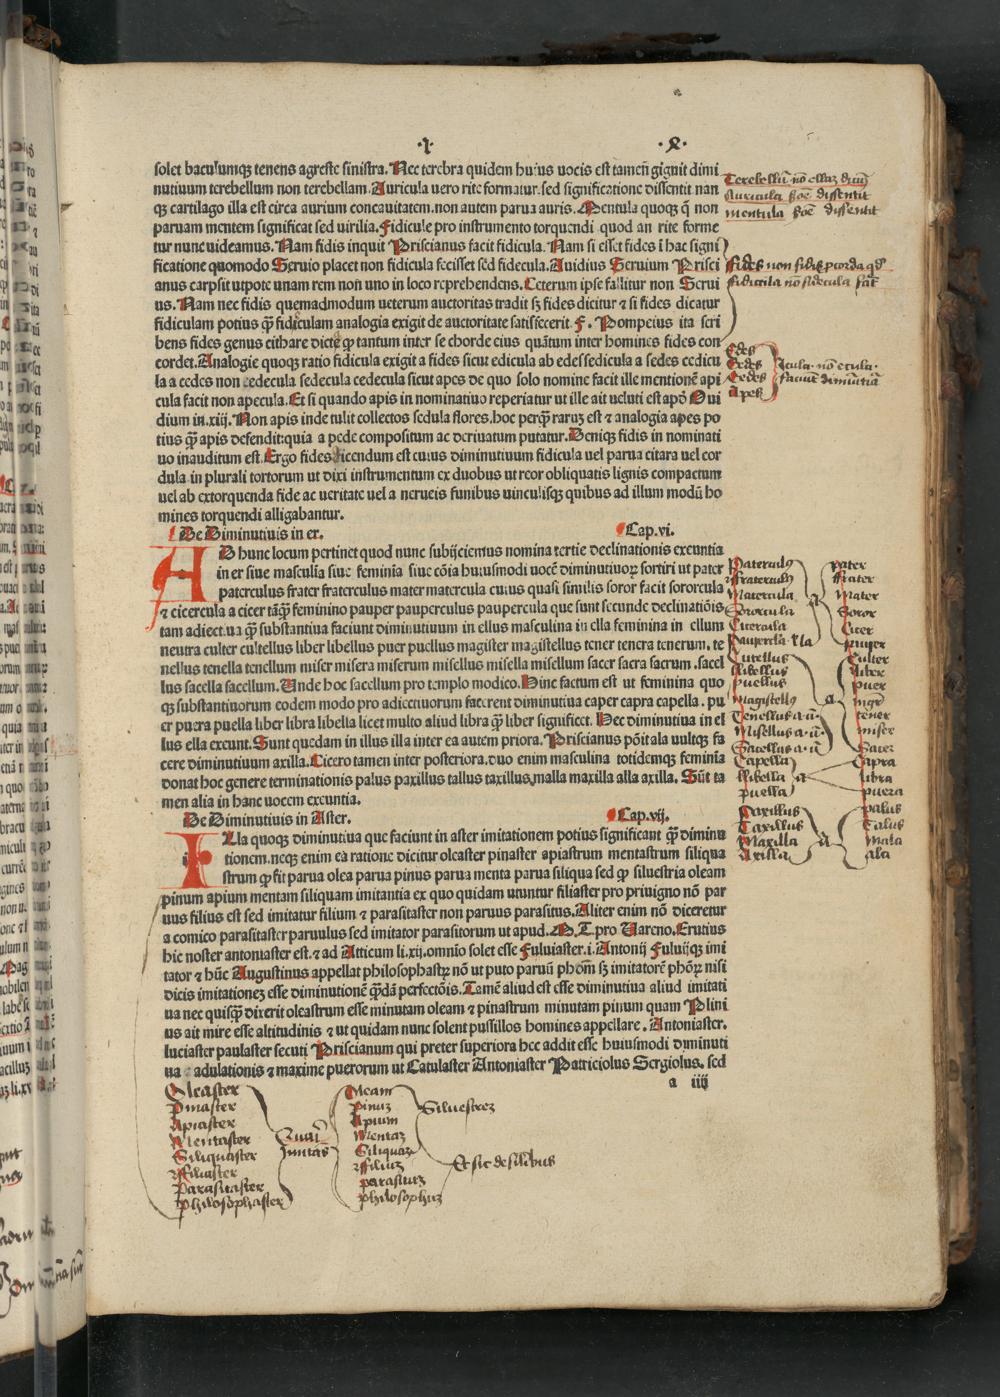 ·I· ·X·
solet baculumqꝫ tenens agreste sinistra. Nec terebra quidem huius uocis est tamen̄ gignit dimi
nutiuum terebellum non terebellam. Auricula uero rite formatur. sed significatione dissentit nan
qꝫ cartilago illa est circa aurium concauitatem. non autem parua auris. Mentula quoqꝫ q̄ non
paruam mentem significat sed uirilia. Fidicule pro instrumento torquendi quod an rite forme
tur nunc uideamus. Nam fidis inquit Priscianus facit fidicula. Nam si esset fides i hac signi
ficatione quomodo Seruio placet non fidicula fecisset sed fidecula. Auidius Seruium Prisci
anus carpsit utpote unam rem non uno in loco reprehendens. Ceterum ipse fallitur non Serui
us. Nam nec fidis quemadmodum ueterum auctoritas tradit sꝫ fides dicitur & si fides dicatur
fidiculam potius q̄ꝫ fidiculam analogia exigit de auctoritate satisfecerit F. Pompeius ita scri
bens fides genus cithare dictę ꝙ tantum inter se chorde eius quātum inter homines fides con
cordet. Analogie quoqꝫ ratio fidicula exigit a fides sicut edicula ab edes sedicula a sedes cedicu
la a cedes non ecedecula sedecula cedecula sicut apes de quo solo nomine facit ille mentionē api
cula facit non apecula. Et si quando apis in nominatiuo reperiatur ut ille ait ueluti est apd̄ Oui
dium in .xiij. Non apis inde tulit collectos sedula flores. hoc perq̄ꝫ raruꝫ est & analogia apes po
tius q̄ꝫ apis defendit: quia a pede compositum ac deriuatum putatur. Deniqꝫ fidis in nominati
uo inauditum est. Ergo fides dicendum est cuius diminutiuum fidicula uel parua citara uel cor
dula in plurali tortorum ut dixi instrumentum ex duobus ut reor obliquatis lignis compactum
uel ab extorquenda fide ac ueritate uel a nerueis funibus uinculisqꝫ quibus ad illum modū ho
mines torquendi alligabantur.
De Diminutiuis in er. Cap. vi.
AD hunc locum pertinet quod nunc subijciemus nomina tertie declinationis exeuntia
in er siue masculia siue feminia siue cōia huiusmodi uocē diminutiuoꝝ sortiri ut pater
paterculus frater fraterculus mater matercula cuius quasi similis soror facit sororcula
& cicercula a cicer tāq̄ꝫ feminino pauper pauperculus paupercula que sunt secunde declinatiōis
tam adiectiua q̄ꝫ substantiua faciunt diminutiuum in ellus masculina in ella feminina in ellum
neutra culter cultellus liber libellus puer puellus magister magistellus tener tenera tenerum. te
nellus tenella tenellum miser misera miserum misellus misella misellum sacer sacra sacrum. sacel
lus sacella sacellum. Unde hoc sacellum pro templo modico. Hinc factum est ut feminina quo
qꝫ substantiuorum eodem modo pro adiectiuorum facerent diminutiua caper capra capella. pu
er puera puella liber libra libella licet multo aliud libra q̄ꝫ liber significet. Hec diminutiua in el
lus ella exeunt. Sunt quedam in illus illa inter ea autem priora. Priscianus pōit ala uultqꝫ fa
cere diminutiuum axilla. Cicero tamen inter posteriora. duo enim masculina totidemqꝫ feminia
donat hoc genere terminationis palus paxillus tallus taxillus, malla maxilla alla axilla. Sūt ta
men alia in hanc uocem exeuntia.
De Diminutiuis in Aster. Cap. vij.
ILla quoqꝫ diminutiua que faciunt in aster imitationem potius significant q̄ꝫ diminu
tionem. neqꝫ enim ea ratione dicitur oleaster pinaster apiastrum mentastrum siliqua
strum ꝙ fit parua olea parua pinus parua menta parua siliqua sed ꝙ siluestria oleam
pinum apium mentam siliquam imitantia ex quo quidam utuntur filiaster pro priuigno nō par
uus filius est sed imitatur filium & parasitaster non paruus parasitus. Aliter enim nō diceretur
a comico parasitaster paruulus sed imitator parasitorum ut apud. M. T. pro Uareno. Erutius
hic noster antoniaster est. & ad Atticum li. xij. omnio solet esse Fuluiaster. i. Antonij Fuluijqꝫ imi
tator & hūc Augustinus appellat philosophastꝝ nō ut puto paruū phōm sꝫ imitatorē phōꝝ nisi
dicis imitationeꝫ esse diminutionē q̄ꝫdā perfectōis. Tamē aliud est esse diminutiua aliud imitati
ua nec quisq̄ꝫ dixerit oleastrum esse minutam oleam & pinastrum minutam pinum quam Plini
us ait mire esse altitudinis & ut quidam nunc solent pussillos homines appellare. Antoniaster.
luciaster paulaster secuti Priscianum qui preter superiora hec addit esse huiusmodi diminuti
ua adulationis & maxime puerorum ut Catulaster Antoniaster Patriciolus Sergiolus. sed
a iiij
Terebellū nō ellaꝫ
Auricula dissentit
mentula dissentit
Fides non fidis
fidicula nō fidecula
Edes
Sedes
Cedes
Apes
Icula. nō ecula.
faciūt diminutiā
Paterculus pater
fraterculus frater
Matercula Mater
Sororcula Soror
Cicercula Cicer
Paupercla·lla pauper
Cutellus Culter
libellus liber
puellus puer
magistellus mgr̄
Tenellus·a·ū· tener
Misellus·a·ū· miser
Sacellus·a·ū Sacer
Capella Capra
libella libra
puella puera
Paxillus palus
Taxillus Talus
Maxilla Mala
Axilla Ala
Oleaster Oleam
Pinaster pinuꝫ
Apiaster Apium
Mentaster Mentaꝫ
Siliquaster Siliquaꝫ
filiaster filiuꝫ
Parasitaster parasituꝫ
Philosophaster philosophuꝫ
Imitās
Siluestreꝫ
Et sic de silibus